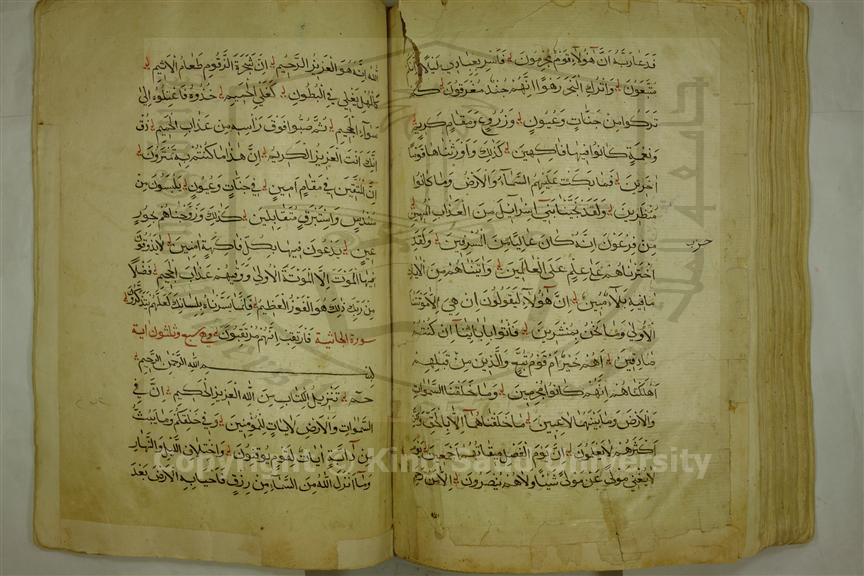 فدعا ربه ان هؤلاء قوم مجرمون فاسر بعبادي ليلا انكم
متبعون واترك البحر رهوا انهم جند مغرقون كم
تركوا من جنات وعيون وزروع ومقام كريم
ونعمة كانوا فيها فاكهين كذلك واورثناها قوما
اخرين فما بكت عليهم السماء والارض وما كانوا
منظرين ولقد نجينا بني اسرائيل من العذاب المهين
من فرعون انه كان عاليا من المسرفين ولقد
حزب
اخترناهم على علم على العالمين واتيناهم من الايات
ما فيه بلاء مبين ان هؤلاء ليقولون ان هي الا موتتنا
الاولى وما نحن بمنشرين فاتوا بابائنا ان كنتم
صادقين اهم خير ام قوم تبع والذين من قبلهم
اهلكناهم انهم كانوا مجرمين وما خلقنا السموات
والارض وما بينهما لاعبين ما خلقناهما الا بالحق ولكن
اكثرهم لا يعلمون ان يوم الفصل ميقاتهم اجمعين يوم
لا يغني مولى عن مولى شيئا ولا هم ينصرون الا من رحم
الله انه هو العزيز الرحيم ان شجرة الزقوم طعام الاثيم
كالمهل يغلي في البطون كغلي الحميم خذوه فاعتلوه الى
سواء الجحيم ثم صبوا فوق راسه من عذاب الحميم ذق
انك انت العزيز الكريم ان هذا ما كنتم به تمترون
ان المتقين في مقام امين في جنات وعيون يلبسون من
سندس واستبرق متقابلين كذلك وزوجناهم بحور
عين يدعون فيها بكل فاكهة امنين لا يذوقون
فيها الموت الا الموتة الاولى ووقيهم عذاب الجحيم فضلا
من ربك ذلك هو الفوز العظيم فانما يسرناه بلسانك لعلهم يتذكرون
فارتقب انهم مرتقبون سورة الجاثية وهي سبع وثلثون اية
بسم الله الرحمن الرحيم
حم تنزيل الكتاب من الله العزيز الحكيم ان في
السموات والارض لايات للمؤمنين وفي خلقكم وما يبث
من دابة ايات لقوم يوقنون واختلاف الليل والنهار
وما انزل الله من السماء من رزق فاحيا به الارض بعد
Copyright © King Saud University
جامعة الملك سعود